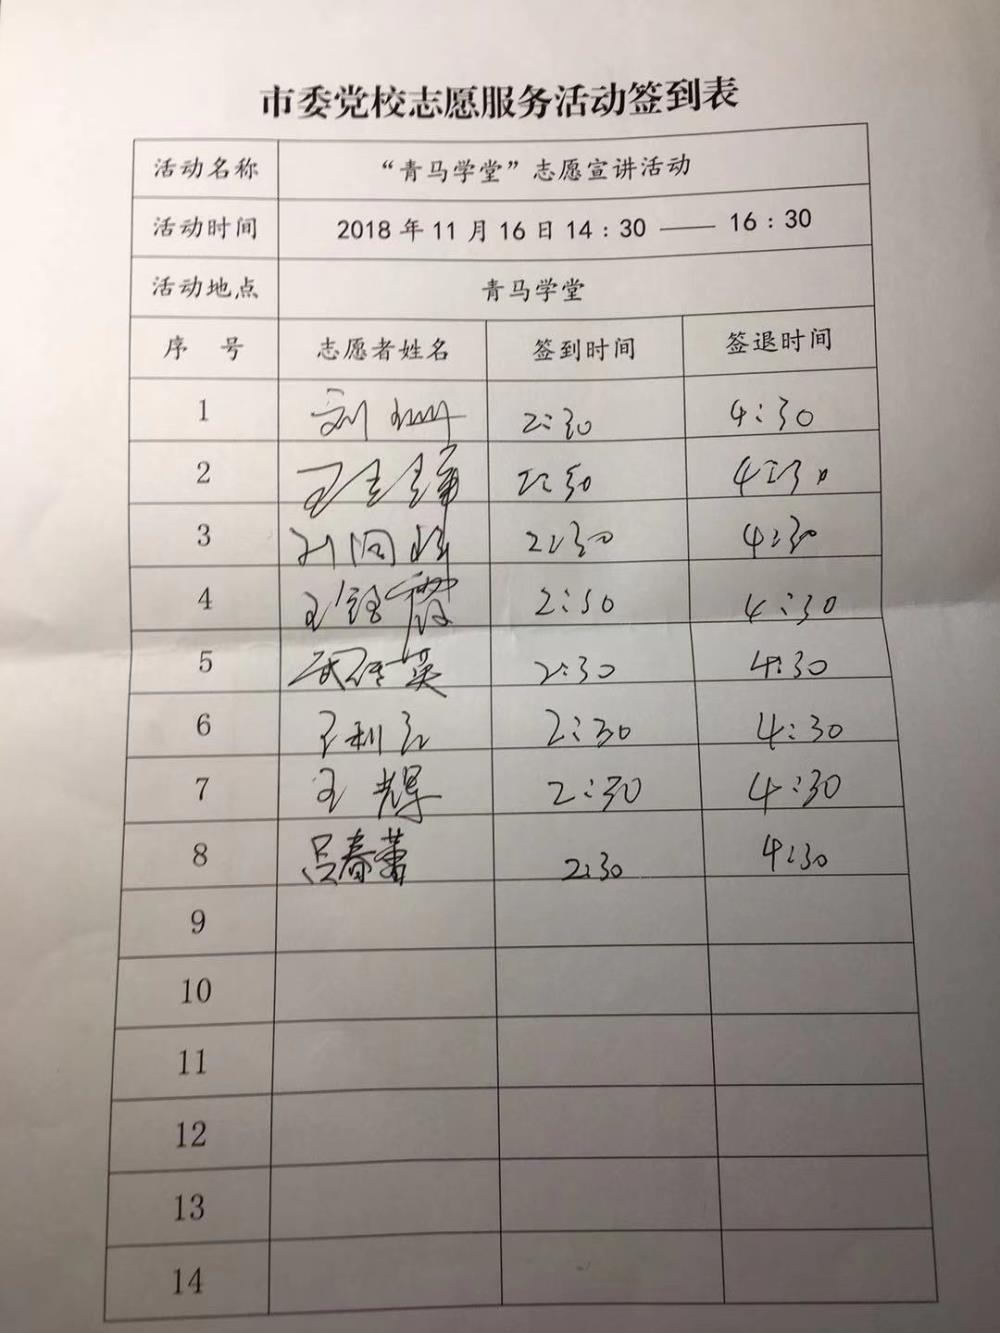 市委党校志愿服务活动签到表
活动名称 “青马学堂”志愿宣讲活动
活动时间 2018年11月16日14：30 —— 16：30
活动地点 青马学堂
序 号 志愿者姓名 签到时间 签退时间
1 刘 2:30 4:30
2 王 2:30 4:30
3 刘国 2:30 4:30
4 王 2:30 4:30
5 英 2:30 4:30
6 王利 2:30 4:30
7 王辉 2:30 4:30
8 吕春蕾 2:30 4:30
9
10
11
12
13
14